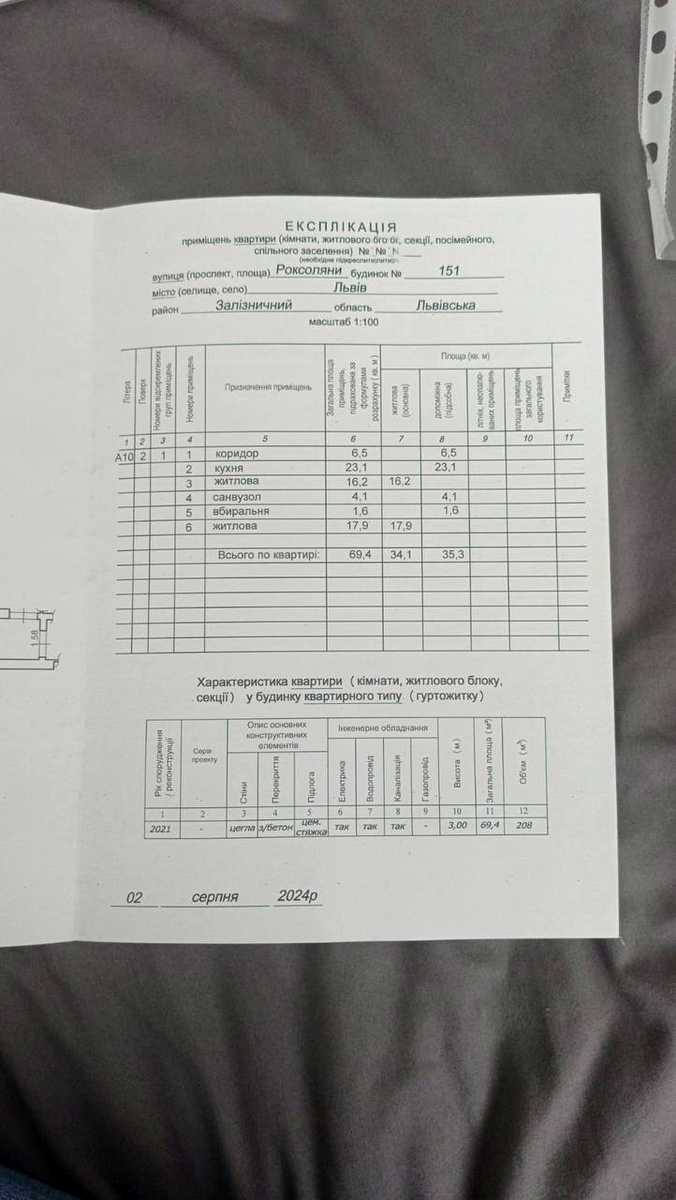 ЕКСПЛІКАЦІЯ
приміщень квартири (кімнати, житлового бго ог, секції, посімейного,
спільного заселення) № № N
вулиця (проспект, площа) Роксоляни будинок № 151
місто (селище, село) Львів
район Залізничний область Львівська
масштаб 1:100
Літера Поверх Номери відокремлених груп приміщень Номери приміщень Призначення приміщень Загальна площа приміщень, підрахована за формулами розрахунку ( кв. м ) Площа (кв. м)
житлова (основна) допоміжна (підсобна) літніх, неопалю- ваних приміщень площа приміщень загального користування Примітки
1 2 3 4 5 6 7 8 9 10 11
А10 2 1 1 коридор 6,5 6,5
2 кухня 23,1 23,1
3 житлова 16,2 16,2
4 санвузол 4,1 4,1
5 вбиральня 1,6 1,6
6 житлова 17,9 17,9
Всього по квартирі: 69,4 34,1 35,3
1.58
Характеристика квартири ( кімнати, житлового блоку,
секції) у будинку квартирного типу ( гуртожитку )
Рік спорудження / реконструкції Серія проекту Опис основних конструктивних елементів Інженерне обладнання Висота ( м ) Загальна площа ( м² ) Об'єм ( м³ )
Стіни Перекриття Підлога Електрика Водопровід Каналізація Газопровід
1 2 3 4 5 6 7 8 9 10 11 12
2021 - цегла з/бетон цем. стяжка так так так - 3,00 69,4 208
02 серпня 2024р